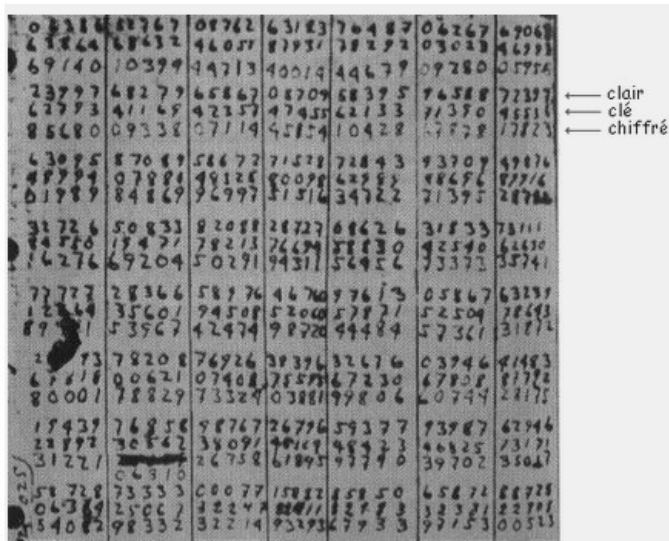 08386 52767 08762 63183 76487 06267 69068
61864 68632 46051 87931 78292 03023 46993
69140 10399 44713 40014 44679 09280 05951
23997 68279 65867 08709 58395 96588 72397 ← clair
62793 41169 42357 47455 62133 71390 45536 ← clé
85680 09338 07114 45154 10428 67878 17823 ← chiffré
63095 87089 58672 71528 72843 93709 49876
48994 07880 48325 80098 62989 88696 89916
01989 84869 96997 51516 34722 71395 28782
32726 50833 82088 28727 08626 31833 73111
84550 19471 78213 76694 58830 42540 62630
16276 69204 50291 94311 56456 73373 35741
77727 28366 58976 46760 97613 05867 63239
35601 94508 52060 57871 52504 78643
53967 42474 98720 44484 57361 31872
78208 76926 38396 32676 03946 41483
00621 07408 75595 67230 67808 87792
80001 78829 73324 03881 99806 60744 28175
19439 76858 98767 26796 59377 93987 62946
22892 30562 38091 45109 48423 46825 73171
31221 26758 61895 97790 39702 35017
06310
58728 73333 00077 15882 85850 65672 88728
06364 32247 88411 82183 32581 22805
54082 32214 93293 67933 97153 00523
025